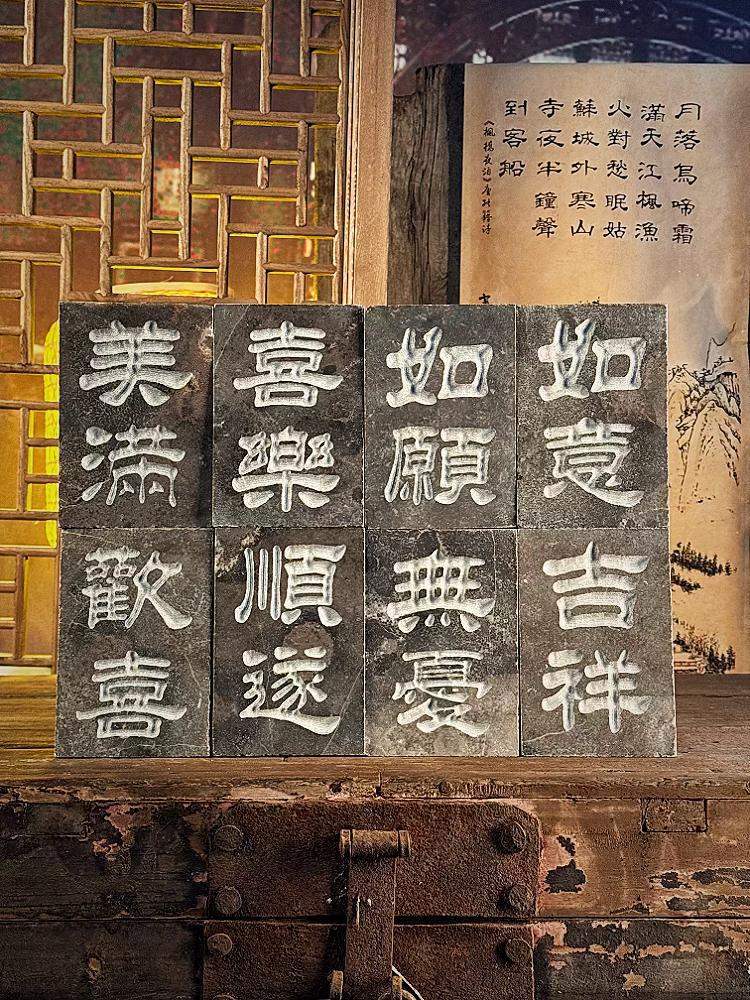 月落烏啼霜
滿天江楓漁
火對愁眠姑
蘇城外寒山
寺夜半鐘聲
到客船
《楓橋夜泊》唐張繼詩
如意
吉祥
如願
無憂
喜樂
順遂
美滿
歡喜